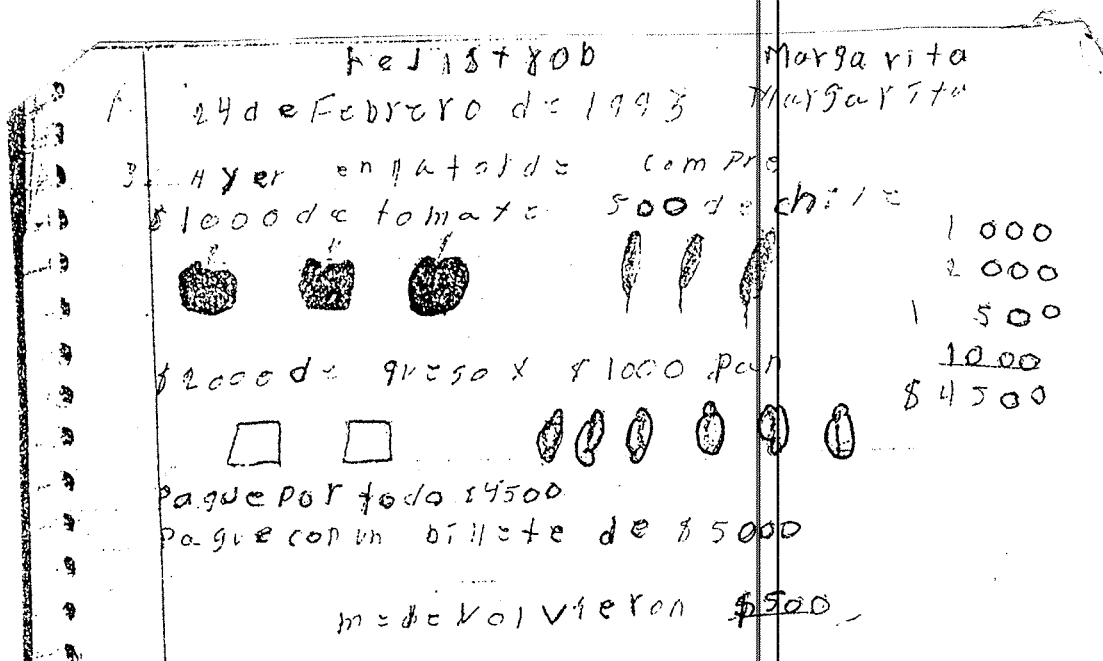 Margarita
24 de Febrero de 1993 Margarita
3. Ayer en la tarde compre
$1000 de tomate 500 de chile
1 000
2 000
1 500
1000
$ 4500
$2000 de queso y $1000 pan
Pague por todo $4500
Pague con un billete de $5000
me devolvieron $500